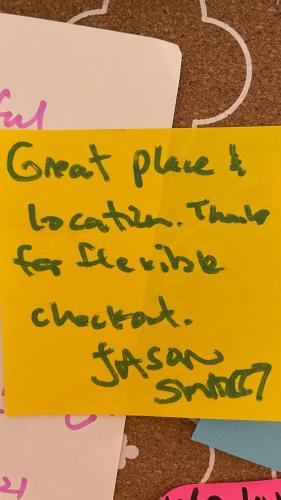 ful
Great place &
location. Thanks
for flexible
checkout.
JASON